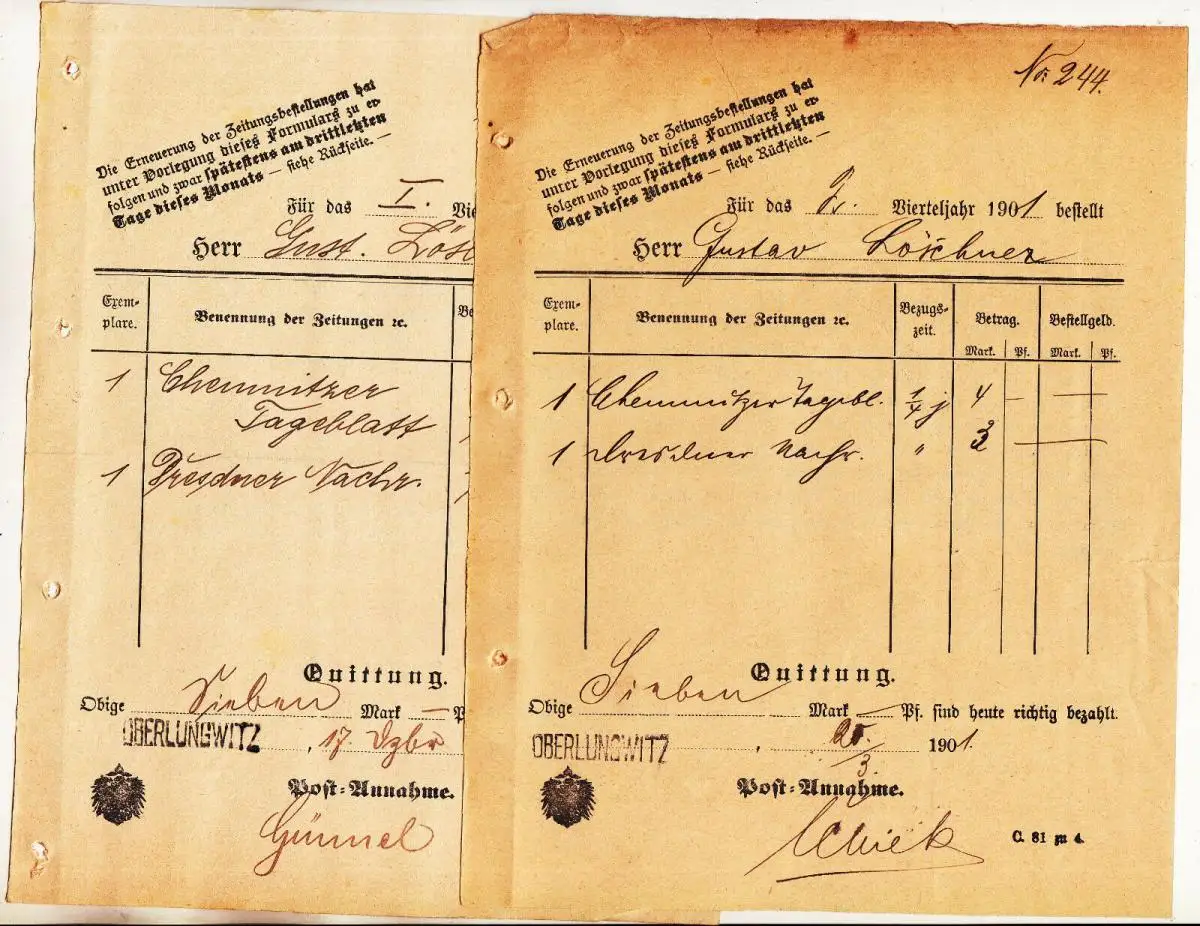 Die Erneuerung der Zeitungsbestellungen hat
unter Vorlegung dieses Formulars zu er-
folgen und zwar spätestens am drittletzten
Tage dieses Monats — siehe Rückseite. —
Für das I. Vie
Herr Gust. Lös
Exem-
plare.
Benennung der Zeitungen ꝛc.
Be
1 Chemnitzer
Tageblatt
1 Dresdner Nachr.
Quittung.
Obige Sieben Mark — P
OBERLUNGWITZ, 17. Dzbr
Post-Annahme.
Gümmel
No. 244.
Die Erneuerung der Zeitungsbestellungen hat
unter Vorlegung dieses Formulars zu er-
folgen und zwar spätestens am drittletzten
Tage dieses Monats — siehe Rückseite. —
Für das Vierteljahr 1901 bestellt
Herr Gustav Löschner
Exem-
plare.
Benennung der Zeitungen ꝛc.
Bezugs-
zeit.
Betrag.
Mark. Pf.
Bestellgeld.
Mark. Pf.
1 Chemnitzer Tagebl. 1/4 j 4 — —
1 Dresdner Nachr. " 3 —
Quittung.
Obige Sieben Mark — Pf. sind heute richtig bezahlt.
OBERLUNGWITZ, 20./3. 1901.
Post-Annahme.
C. 81 zu 4.